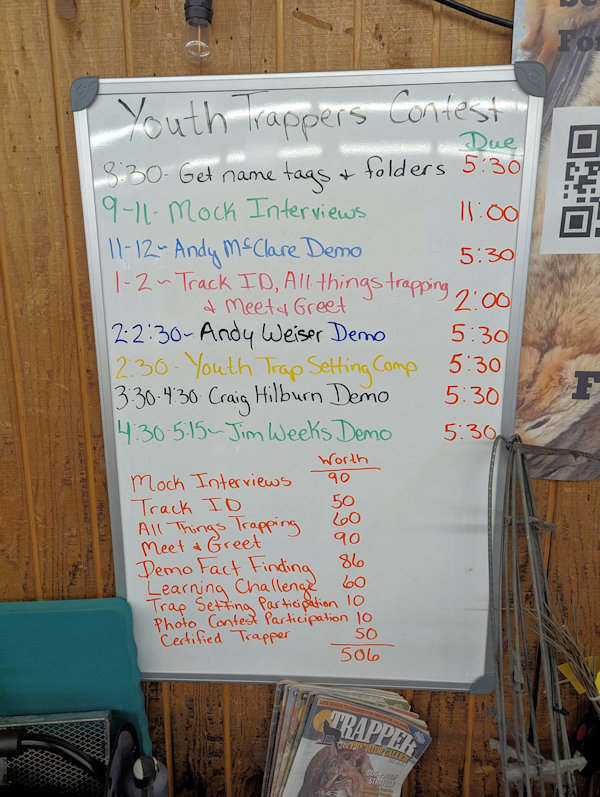 Youth Trappers Contest
Due
8:30- Get name tags & folders 5:30
9-11- Mock Interviews 11:00
11-12~ Andy McClare Demo 5:30
1-2~ Track ID, All things trapping
& Meet & Greet 2:00
2-2:30~ Andy Weiser Demo 5:30
2:30- Youth Trap Setting Comp 5:30
3:30-4:30 Craig Hilburn Demo 5:30
4:30-5:15~ Jim Weeks Demo 5:30
Worth
Mock Interviews 90
Track ID 50
All Things Trapping 60
Meet & Greet 90
Demo Fact Finding 86
Learning Challenge 60
Trap Setting Participation 10
Photo Contest Participation 10
Certified Trapper 50
506
TRAPPER
& PREDATOR CALLER
Fo
F